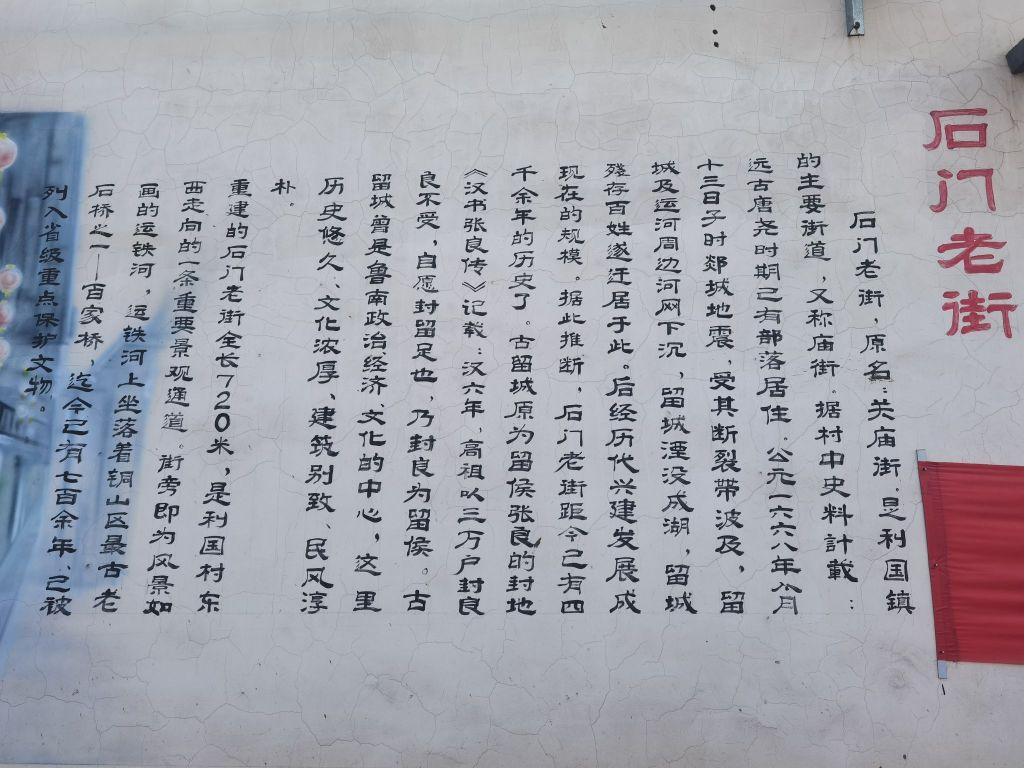 石门老街
石门老街，原名：关庙街，是利国镇
的主要街道，又称庙街。据村中史料計載：
远古唐尧时期已有部落居住。公元一六六八年八月
十三日子时郯城地震，受其断裂带波及，留
城及运河周边河网下沉，留城湮没成湖，留城
残存百姓遂迁居于此。后经历代兴建发展成
现在的规模。据此推断，石门老街距今已有四
千余年的历史了。古留城原为留侯张良的封地
《汉书张良传》记载：汉六年，高祖以三万户封良
良不受，自愿封留足也，乃封良为留侯。古
留城曾是鲁南政治经济、文化的中心，这里
历史悠久、文化浓厚、建筑别致、民风淳
朴。
重建的石门老街全长720米，是利国村东
西走向的一条重要景观通道。街旁即为风景如
画的运铁河，运铁河上坐落着铜山区最古老
石桥之一——百家桥，迄今已有七百余年、已被
列入省级重点保护文物。